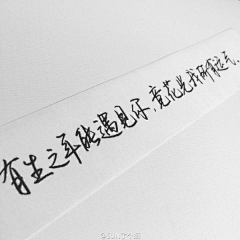 有生之年能遇见你,竟花光我所有运气。